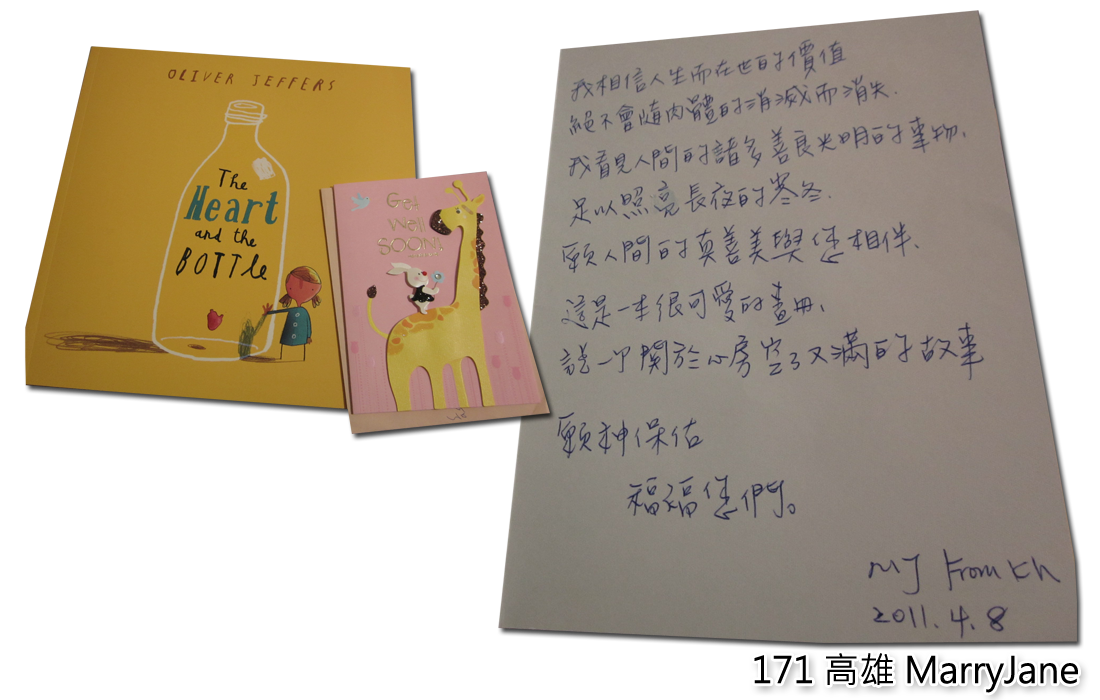 OLIVER JEFFERS
The
Heart
and the
BOTTLE
Get
Well
SOON!
我相信人生而在世的價值
絕不會隨肉體的消滅而消失.
我看見人間的諸多善良光明的事物,
足以照亮長夜的寒冬.
願人間的真善美與您相伴,
這是一本很可愛的畫冊,
說一個關於心房空了又滿的故事
願神保佑
福福您們。
MJ From KH
2011.4.8
171 高雄 MarryJane